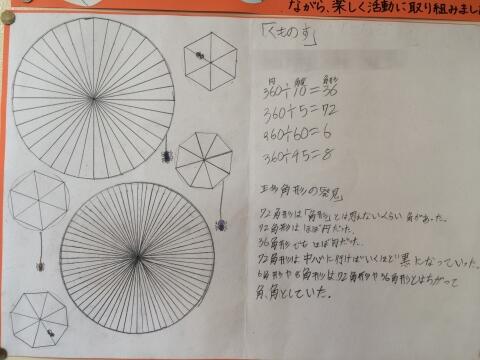 ながら、楽しく活動に取り組みまし
「くものす」
円 角度 角形
360÷10=36
360÷5=72
360÷60=6
360÷45=8
正多角形の発見
72角形は「角形」とは思えないくらい角があった。
72角形はほぼ円だった。
36角形でもほぼ円だった。
72角形は中心に行けばいくほど黒になっていった。
6角形や8角形は72角形や36角形とはちがって
角、角としていた。